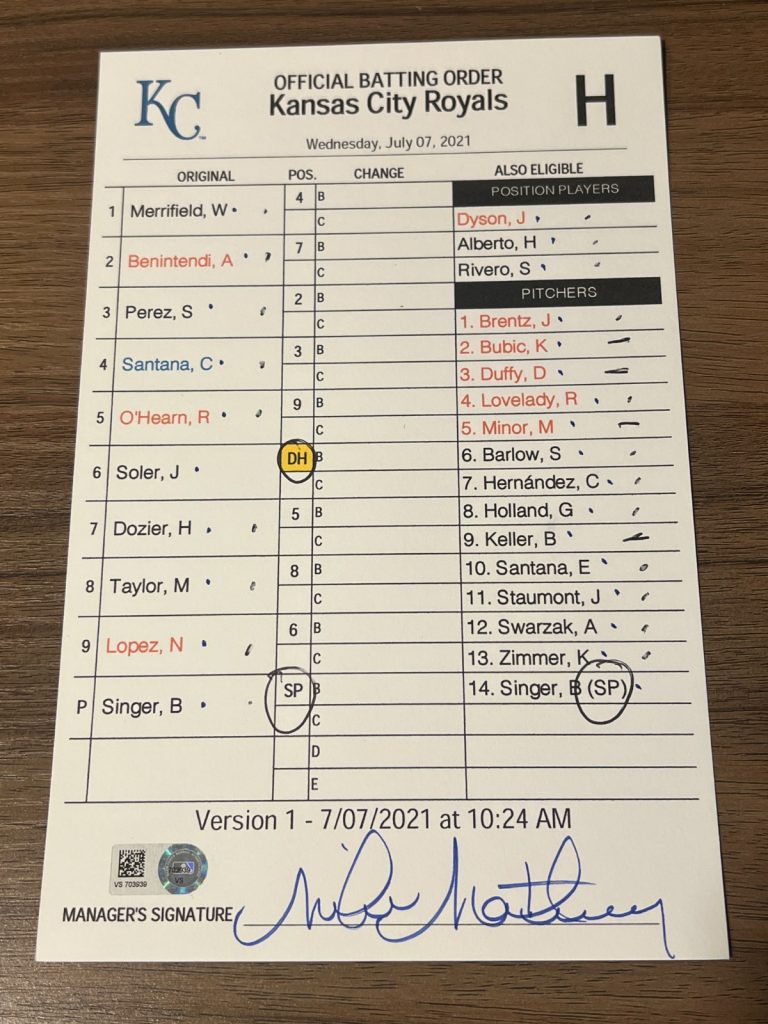 KC
OFFICIAL BATTING ORDER
Kansas City Royals
H
Wednesday, July 07, 2021
ORIGINAL POS. CHANGE ALSO ELIGIBLE
1 Merrifield, W 4 B POSITION PLAYERS
C Dyson, J
2 Benintendi, A 7 B Alberto, H
C Rivero, S
3 Perez, S 2 B PITCHERS
C 1. Brentz, J
4 Santana, C 3 B 2. Bubic, K
C 3. Duffy, D
5 O'Hearn, R 9 B 4. Lovelady, R
C 5. Minor, M
6 Soler, J DH B 6. Barlow, S
C 7. Hernández, C
7 Dozier, H 5 B 8. Holland, G
C 9. Keller, B
8 Taylor, M 8 B 10. Santana, E
C 11. Staumont, J
9 Lopez, N 6 B 12. Swarzak, A
C 13. Zimmer, K
P Singer, B SP B 14. Singer, B (SP)
C
D
E
Version 1 - 7/07/2021 at 10:24 AM
VS 703939
703939
VS
MANAGER'S SIGNATURE Mike Matheny